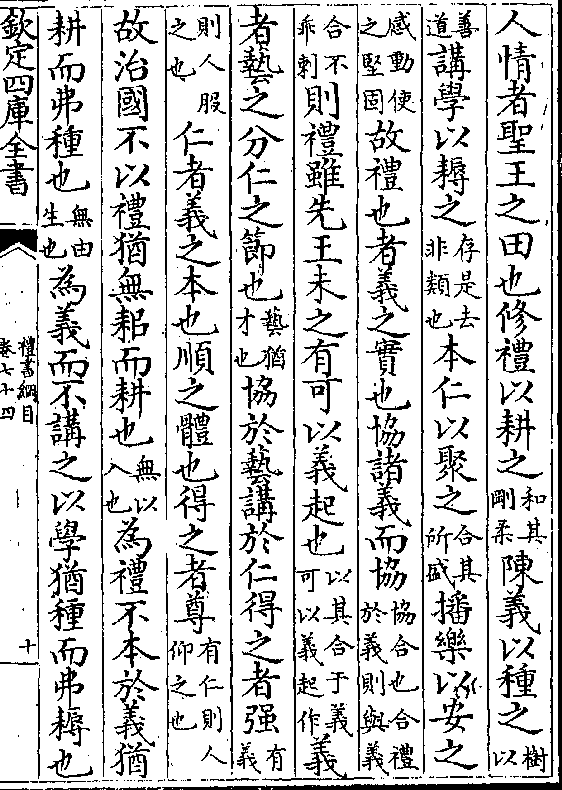 人情者聖王之田也修禮以耕之和其剛柔陳義以種之樹以
善道講學以耨之存是去非類也本仁以聚之合其所盛播樂以安之
感動使之堅固故禮也者義之實也協諸義而協協合也合禮於義則與義
合不乖剌則禮雖先王未之有可以義起也以其合于義可以義起作義
者藝之分仁之節也藝猶才也協於藝講於仁得之者强有義
則人服之也仁者義之本也順之體也得之者尊有仁則人仰之也
故治國不以禮猶無耜而耕也無以入也為禮不本於義猶
耕而弗種也無由生也為義而不講之以學猶種而弗耨也
欽定四庫全書
禮書綱目
卷七十四
十